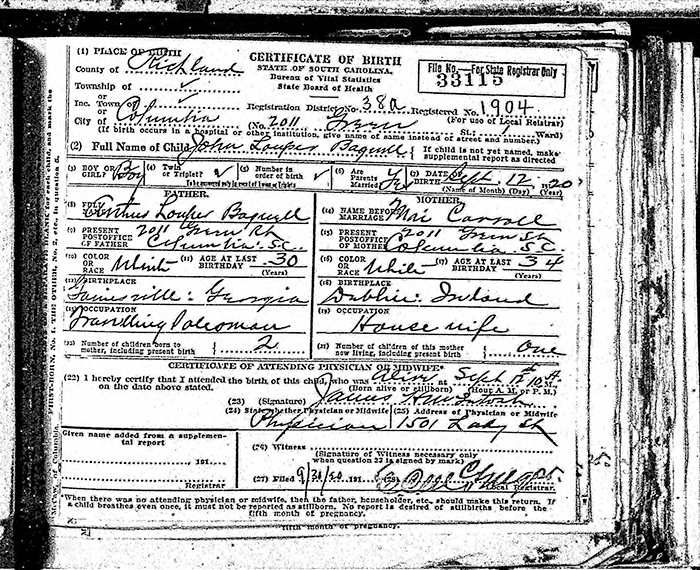 (1) PLACE OF BIRTH
CERTIFICATE OF BIRTH
File No.—For State Registrar Only
33115
County of Richland
STATE OF SOUTH CAROLINA.
Bureau of Vital Statistics
State Board of Health
Township of
or
Inc. Town
Registration District No. 38a Registered No. 1904
or
(For use of Local Registrar)
City of Columbia (No. 2011 Green St.; Ward)
(If birth occurs in a hospital or other institution, give name of same instead of street and number.)
(2) Full Name of Child John Bagwell
If child is not yet named, make supplemental report as directed
(3) BOY OR GIRL? Boy (4) Twin or Triplet? (5) Number in order of birth (6) Are Parents Married Yes (7) DATE OF BIRTH Sept. 12 1920
(Name of Month) (Day) (Year)
FATHER.
MOTHER.
(8) FULL Bagwell
(14) NAME BEFORE MARRIAGE Carroll
(9) PRESENT POSTOFFICE OF FATHER 2011 Green St Columbia. S.C.
(15) PRESENT POSTOFFICE OF MOTHER 2011 Green St Columbia S.C.
(10) COLOR OR RACE White (11) AGE AT LAST BIRTHDAY 30 (Years)
(16) COLOR OR RACE White (17) AGE AT LAST BIRTHDAY 34 (Years)
(12) BIRTHPLACE Gainesville: Georgia
(18) BIRTHPLACE Dublin: Ireland
(13) OCCUPATION Traveling Salesman
(19) OCCUPATION House wife
(20) Number of children born to mother, including present birth 2
(21) Number of children of this mother now living, including present birth One
CERTIFICATE OF ATTENDING PHYSICIAN OR MIDWIFE*
(22) I hereby certify that I attended the birth of this child, who was alive at Sept 12th 10 A.
on the date above stated. (Born alive or stillborn) (Hour A. M. or P. M.)
(23) (Signature) James
(24) State whether Physician or Midwife (25) Address of Physician or Midwife
Physician 1501 Lady St
Given name added from a supplemental report
(26) Witness
(Signature of Witness necessary only
when question 23 is signed by mark)
191
Registrar
(27) Filed 191 Local Registrar.
*When there was no attending physician or midwife, then the father, householder, etc., should make this return. If
a child breathes even once, it must not be reported as stillborn. No report is desired of stillbirths before the
fifth month of pregnancy.
fifth month of pregnancy.